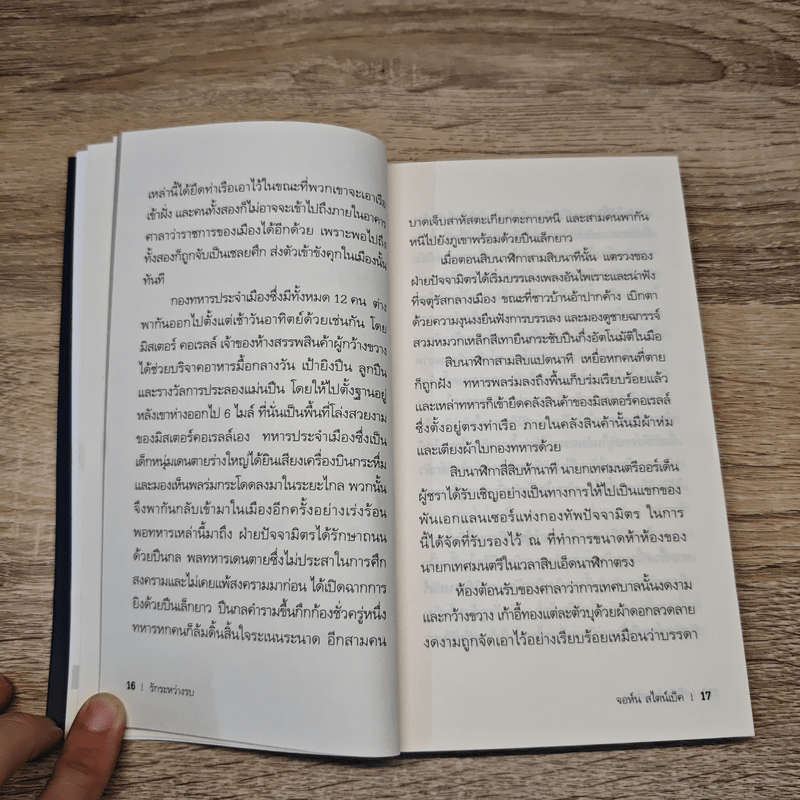 เหล่านี้ได้ยึดท่าเรือเอาไว้ในขณะที่พวกเขาจะเอาเรือ
เข้าฝั่ง และคนทั้งสองก็ไม่อาจจะเข้าไปถึงภายในอาคาร
ศาลาว่าราชการของเมืองได้อีกด้วย เพราะพอไปถึง
ทั้งสองก็ถูกจับเป็นเชลยศึก ส่งตัวเข้าขังคุกในเมืองนั้น
ทันที
กองทหารประจำเมืองซึ่งมีทั้งหมด 12 คน ต่าง
พากันออกไปตั้งแต่เช้าวันอาทิตย์ด้วยเช่นกัน โดย
มิสเตอร์ คอเรลล์ เจ้าของห้างสรรพสินค้าผู้กว้างขวาง
ได้ช่วยบริจาคอาหารมื้อกลางวัน เป้ายิงปืน ลูกปืน
และรางวัลการประลองแม่นปืน โดยให้ไปตั้งฐานอยู่
หลังเขาห่างออกไป 6 ไมล์ ที่นั่นเป็นพื้นที่โล่งสวยงาม
ของมิสเตอร์คอเรลล์เอง ทหารประจำเมืองซึ่งเป็น
เด็กหนุ่มเดนตายร่างใหญ่ได้ยินเสียงเครื่องบินกระหึ่ม
และมองเห็นพลร่มกระโดดลงมาในระยะไกล พวกนั้น
จึงพากันกลับเข้ามาในเมืองอีกครั้งอย่างเร่งร้อน
พอทหารเหล่านี้มาถึง ฝ่ายปัจจามิตรได้รักษาถนน
ด้วยปืนกล พลทหารเดนตายซึ่งไม่ประสาในการศึก
สงครามและไม่เคยแพ้สงครามมาก่อน ได้เปิดฉากการ
ยิงด้วยปืนเล็กยาว ปืนกลคำรามขึ้นกึกก้องชั่วครู่หนึ่ง
ทหารหกคนก็ล้มดิ้นสิ้นใจระเนนระนาด อีกสามคน
16 | รักระหว่างรบ
บาดเจ็บสาหัสตะเกียกตะกายหนี และสามคนพากัน
หนีไปยังภูเขาพร้อมด้วยปืนเล็กยาว
เมื่อตอนสิบนาฬิกาสามสิบนาทีนั้น แตรวงของ
ฝ่ายปัจจามิตรได้เริ่มบรรเลงเพลงอันไพเราะและน่าฟัง
ที่จตุรัสกลางเมือง ขณะที่ชาวบ้านอ้าปากค้าง เบิกตา
ด้วยความงุนงงยืนฟังการบรรเลง และมองดูชายฉกรรจ์
สวมหมวกเหล็กสีเทายืนกระชับปืนกึ่งอัตโนมัติในมือ
สิบนาฬิกาสามสิบแปดนาที เหยื่อหกคนที่ตาย
ก็ถูกฝัง ทหารพลร่มลงถึงพื้นเก็บร่มเรียบร้อยแล้ว
และเหล่าทหารก็เข้ายึดคลังสินค้าของมิสเตอร์คอเรลล์
ซึ่งตั้งอยู่ตรงท่าเรือ ภายในคลังสินค้านั้นมีผ้าห่ม
และเตียงผ้าใบกองทหารด้วย
สิบนาฬิกาสี่สิบห้านาที นายกเทศมนตรีออร์เด็น
ผู้ชราได้รับเชิญอย่างเป็นทางการให้ไปเป็นแขกของ
พันเอกแลนเซอร์แห่งกองทัพปัจจามิตร ในการ
นี้ได้จัดที่รับรองไว้ ณ ที่ทำการขนาดห้าห้องของ
นายกเทศมนตรีในเวลาสิบเอ็ดนาฬิกาตรง
ห้องต้อนรับของศาลาว่าการเทศบาลนั้นงดงาม
และกว้างขวาง เก้าอี้ทองแต่ละตัวบุด้วยผ้าดอกลวดลาย
งดงามถูกจัดเอาไว้อย่างเรียบร้อยเหมือนว่าบรรดา
จอห์น สไตน์เบ็ค | 17